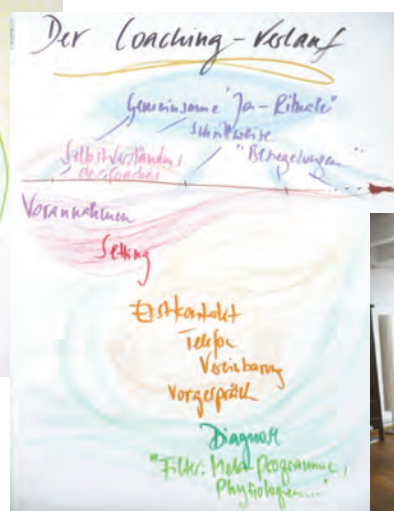 Der Coaching-Verlauf
Gemeinsame "Ja-Rituale"
Schrittweise
"Besiegelungen"
Selbstverständnis
des Coaches
Vorannahmen
Setting
Erstkontakt
Telefon
Vereinbarung
Vorgespräch
Diagnose
"Filter: Meta-Programme,
Physiologien..."